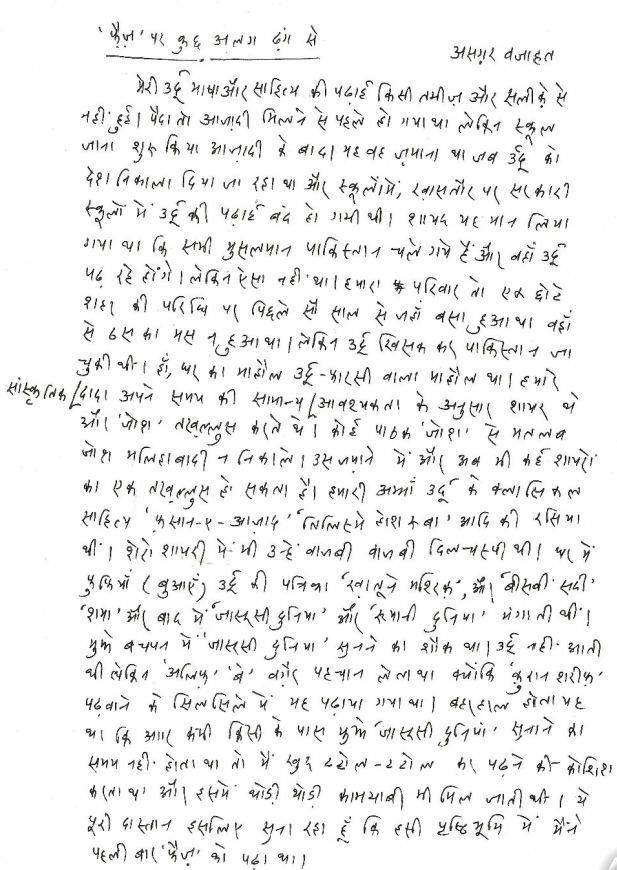 'फ़ैज़' पर कुछ अलग ढंग से
असग़र वजाहत
मेरी उर्दू भाषा और साहित्य की पढ़ाई किसी तमीज़ और सलीके से
नहीं हुई। पैदा तो आज़ादी मिलने से पहले हो गया था लेकिन स्कूल
जाना शुरू किया आज़ादी के बाद। यह वह ज़माना था जब उर्दू को
देश निकाला दिया जा रहा था और स्कूलों में, ख़ासतौर पर सरकारी
स्कूलों में उर्दू की पढ़ाई बंद हो गयी थी। शायद यह मान लिया
गया था कि सभी मुसलमान पाकिस्तान चले गये हैं और वहाँ उर्दू
पढ़ रहे होंगे। लेकिन ऐसा नहीं था। हमारा परिवार तो एक छोटे
शहर की परिधि पर पिछले सौ साल से जहाँ बसा हुआ था वहाँ
से ठस का मस न हुआ था। लेकिन उर्दू खिसक कर पाकिस्तान जा
चुकी थी। हाँ, घर का माहौल उर्दू-फ़ारसी वाला माहौल था। हमारे
दादा अपने समय की सामान्य सांस्कृतिक आवश्यकता के अनुसार शायर थे
और 'जोश' तख़ल्लुस करते थे। कोई पाठक 'जोश' से मतलब
जोश मलिहाबादी न निकाले। उस ज़माने में और अब भी कई शायरों
का एक तख़ल्लुस हो सकता है। हमारी अम्माँ उर्दू के क्लासिकल
साहित्य 'फ़सान-ए-आज़ाद' 'तिलिस्मे होशरूबा' आदि की रसिया
थीं। शेरो शायरी में भी उन्हें वाजबी वाजबी दिलचस्पी थी। घर में
फुफियाँ (बुआएँ) उर्दू की पत्रिका 'ख़ातूने मशरिक़', और 'बीसवीं सदी'
'शमा' और बाद में 'जासूसी दुनिया' और 'रूमानी दुनिया' मंगाती थीं।
मुझे बचपन में 'जासूसी दुनिया' सुनने का शौक था। उर्दू नहीं आती
थी लेकिन 'अलिफ़' 'बे' वग़ैर पहचान लेता था क्योंकि 'कुरान शरीफ़'
पढ़वाने के सिलसिले में यह पढ़ाया गया था। बहरहाल होता यह
था कि अगर कभी किसी के पास मुझे 'जासूसी दुनिया' सुनाने का
समय नहीं होता था तो मैं खुद टटोल-टटोल कर पढ़ने की कोशिश
करता था और इसमें थोड़ी थोड़ी कामयाबी भी मिल जाती थी। ये
पूरी दास्तान इसलिए सुना रहा हूँ कि इसी पृष्ठभूमि में मैंने
पहली बार 'फ़ैज़' को पढ़ा था।